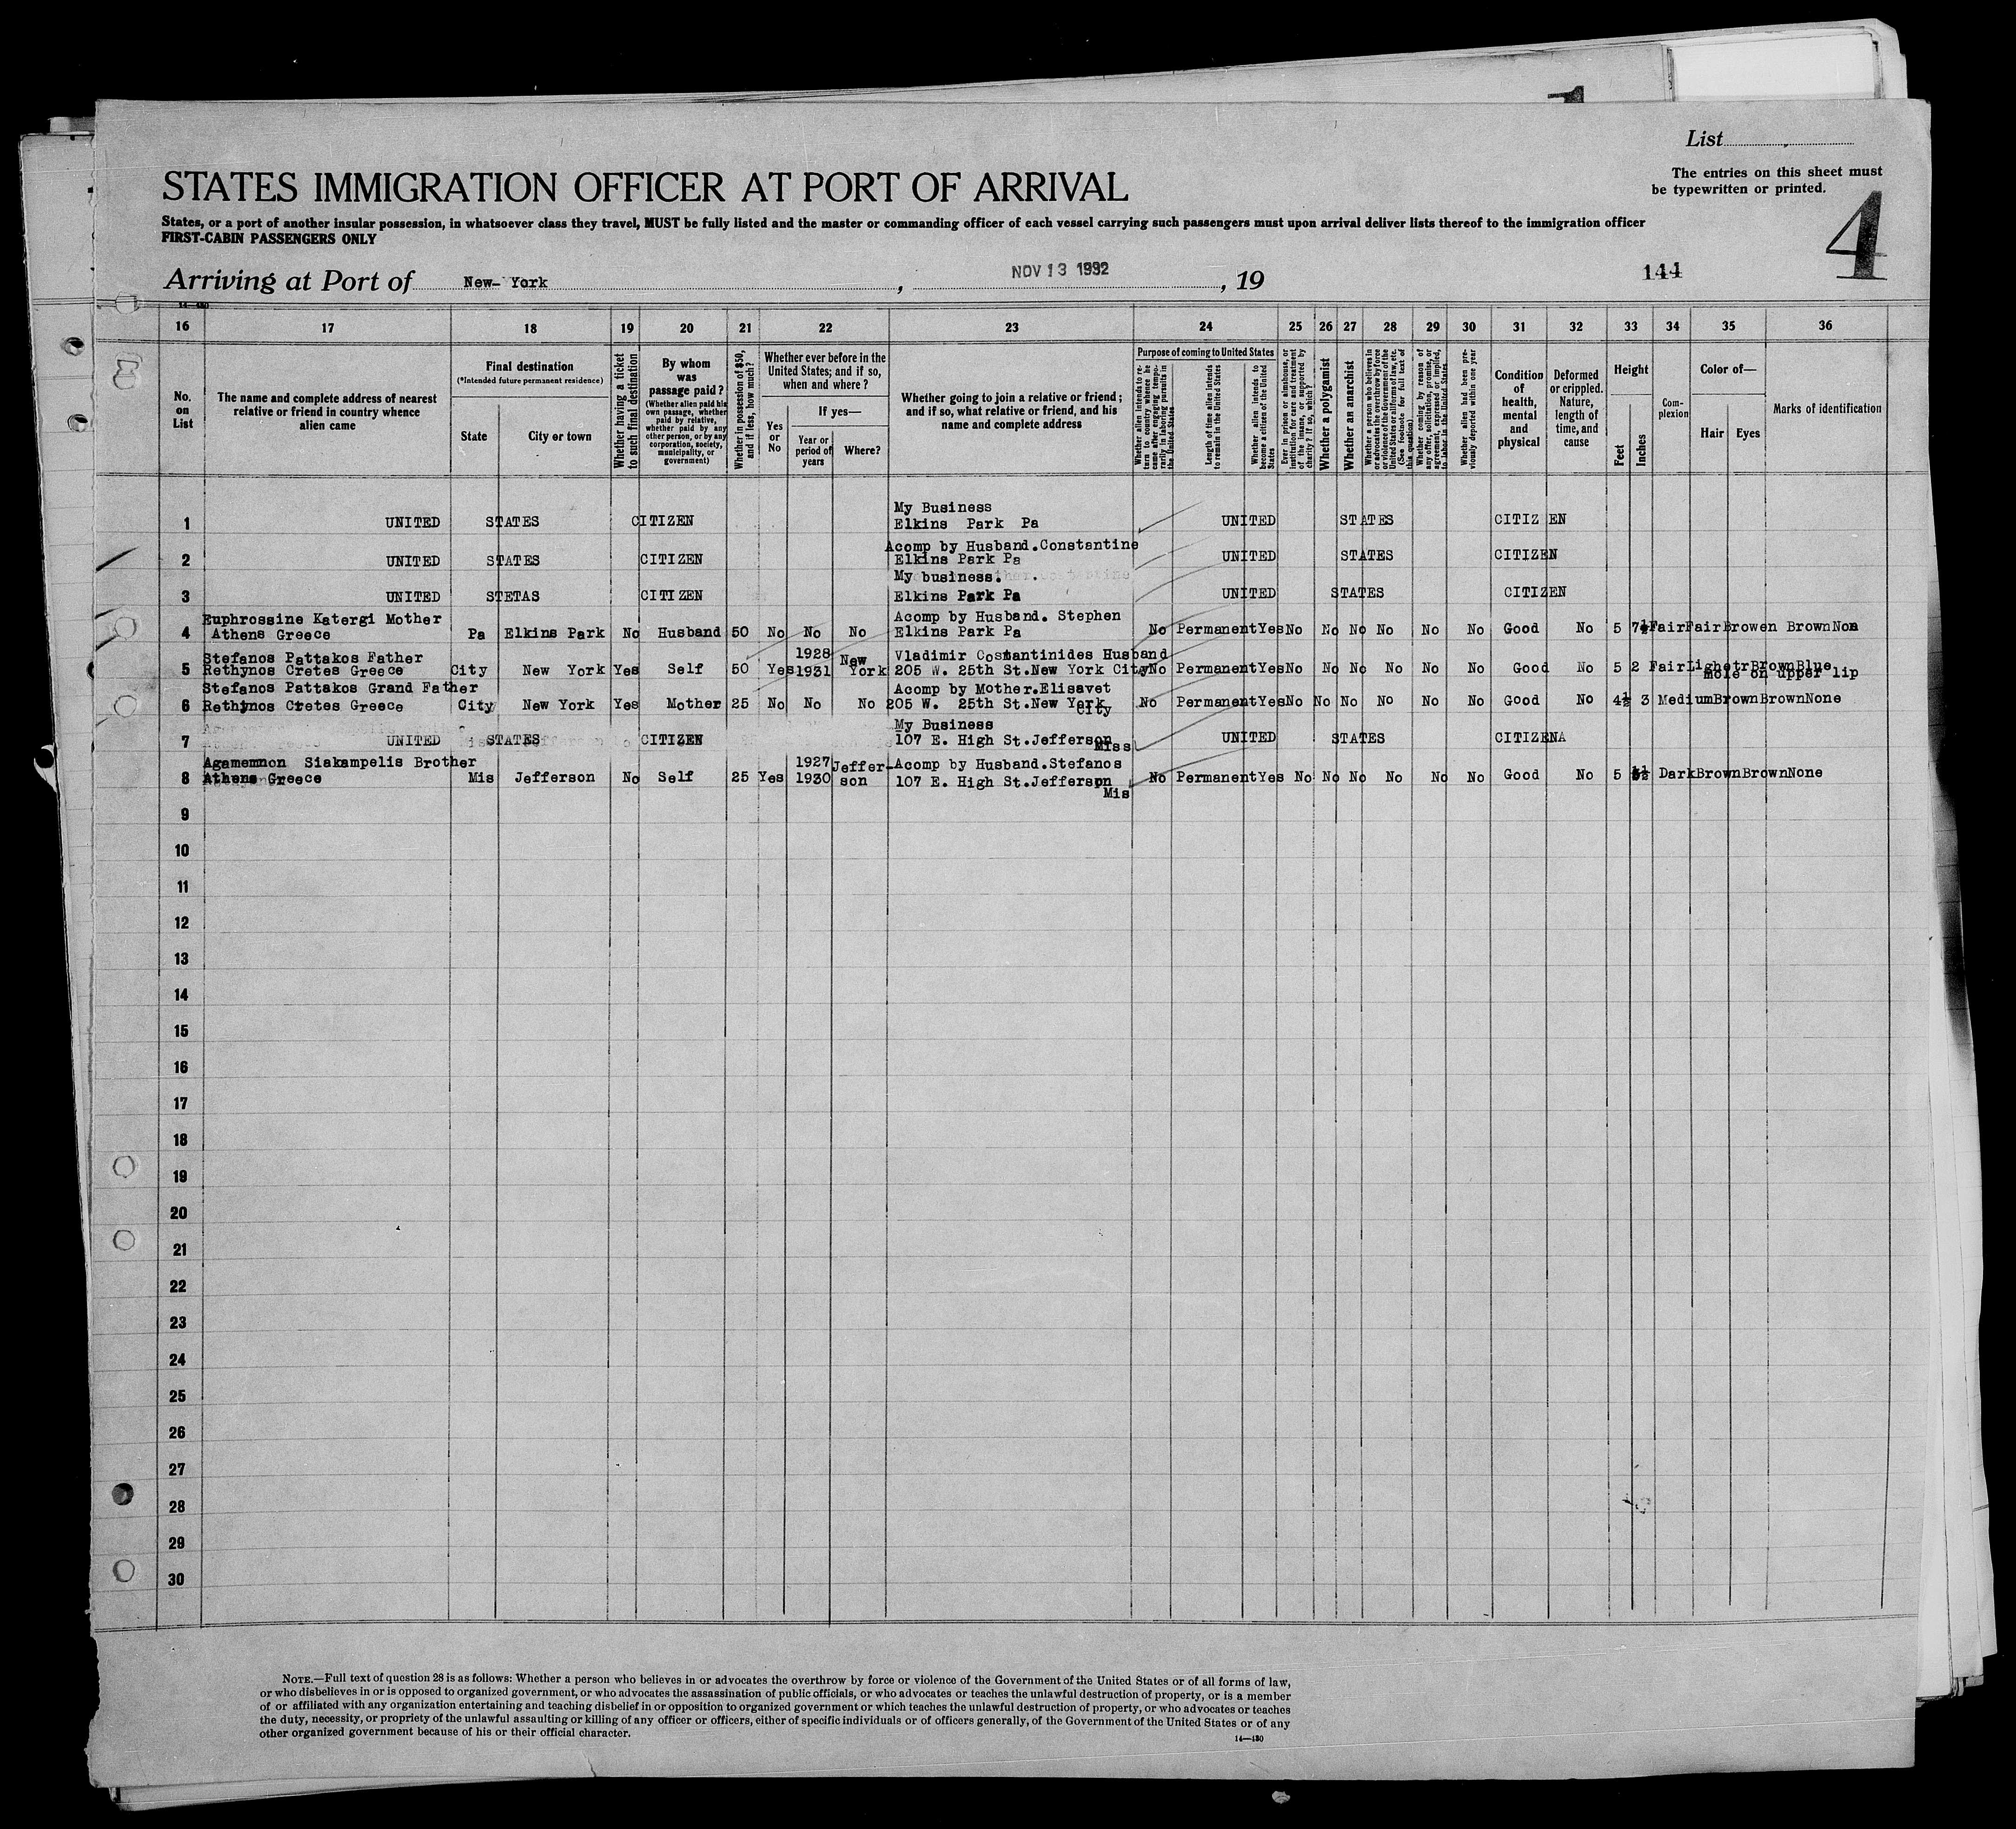 List
The entries on this sheet must
be typewritten or printed.
STATES IMMIGRATION OFFICER AT PORT OF ARRIVAL
4
States, or a port of another insular possession, in whatsoever class they travel, MUST be fully listed and the master or commanding officer of each vessel carrying such passengers must upon arrival deliver lists thereof to the immigration officer
FIRST-CABIN PASSENGERS ONLY
Arriving at Port of New- York , NOV 13 1932 , 19
144
14—430
16 17 18 19 20 21 22 23 24 25 26 27 28 29 30 31 32 33 34 35 36
No. on List
The name and complete address of nearest relative or friend in country whence alien came
Final destination
(*Intended future permanent residence)
State
City or town
Whether having a ticket to such final destination
By whom was passage paid?
(Whether alien paid his own passage, whether paid by relative, whether paid by any other person, or by any corporation, society, municipality, or government)
Whether in possession of $50, and if less, how much?
Whether ever before in the United States; and if so, when and where?
Yes or No
If yes—
Year or period of years
Where?
Whether going to join a relative or friend; and if so, what relative or friend, and his name and complete address
Purpose of coming to United States
Whether alien intends to return to country whence he came after engaging temporarily in laboring pursuits in the United States
Length of time alien intends to remain in the United States
Whether alien intends to become a citizen of the United States
Ever in prison or almshouse, or institution for care and treatment of the insane, or supported by charity? If so, which?
Whether a polygamist
Whether an anarchist
Whether a person who believes in or advocates the overthrow by force or violence of the Government of the United States or all forms of law, etc. (See footnote for full text of this question)
Whether coming by reason of any offer, solicitation, promise, or agreement, expressed or implied, to labor in the United States
Whether alien had been previously deported within one year
Condition of health, mental and physical
Deformed or crippled. Nature, length of time, and cause
Height
Feet
Inches
Com-plexion
Color of—
Hair
Eyes
Marks of identification
My Business
1 UNITED STATES CITIZEN Elkins Park Pa UNITED STATES CITIZ EN
Acomp by Husband.Constantine
2 UNITED STATES CITIZEN Elkins Park Pa UNITED STATES CITIZEN
My business.
3 UNITED STETAS CITIZEN Elkins Park Pa UNITED STATES CITIZEN
Euphrossine Katergi Mother Acomp by Husband. Stephen
4 Athens Greece Pa Elkins Park No Husband 50 No No No Elkins Park Pa No Permanent Yes No No No No No No Good No 5 7½ Fair Fair Browen Brown Non
Stefanos Pattakos Father 1928 New Vladimir Costantinides Husband
5 Rethynos Cretes Greece City New York Yes Self 50 Yes 1931 York 205 W. 25th St.New York City No Permanent Yes No No No No No No Good No 5 2 Fair Lighetr Brown Blue
mole on upper lip
Stefanos Pattakos Grand Father Acomp by Mother.Elisavet
6 Rethynos Cretes Greece City New York Yes Mother 25 No No No 205 W. 25th St.New York City No Permanent Yes No No No No No No Good No 4½ 3 Medium Brown Brown None
My Business
7 UNITED STATES CITIZEN 107 E. High St.Jefferson Miss UNITED STATES CITIZENA
Agamemnon Siakampelis Brother 1927 Jeffer- Acomp by Husband.Stefanos
8 Athens Greece Mis Jefferson No Self 25 Yes 1930 son 107 E. High St.Jefferson Mis No Permanent Yes No No No No No No Good No 5 Dark Brown Brown None
9
10
11
12
13
14
15
16
17
18
19
20
21
22
23
24
25
26
27
28
29
30
NOTE.—Full text of question 28 is as follows: Whether a person who believes in or advocates the overthrow by force or violence of the Government of the United States or of all forms of law,
or who disbelieves in or is opposed to organized government, or who advocates the assassination of public officials, or who advocates or teaches the unlawful destruction of property, or is a member
of or affiliated with any organization entertaining and teaching disbelief in or opposition to organized government or which teaches the unlawful destruction of property, or who advocates or teaches
the duty, necessity, or propriety of the unlawful assaulting or killing of any officer or officers, either of specific individuals or of officers generally, of the Government of the United States or of any
other organized government because of his or their official character.
14—430